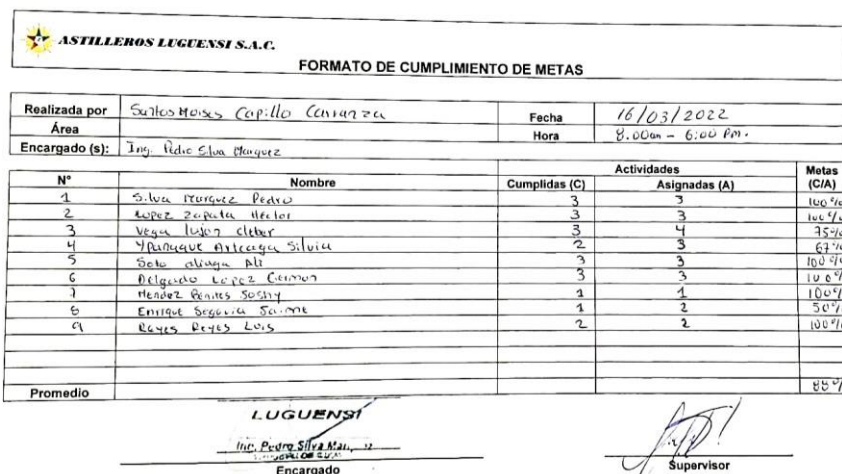 ASTILLEROS LUGUENSI S.A.C.
FORMATO DE CUMPLIMIENTO DE METAS
Realizada por Santos Moises Capillo Carranza Fecha 16/03/2022
Área Hora 8:00am - 6:00 Pm.
Encargado (s): Ing. Pedro Silva Marquez
Actividades Metas
N° Nombre Cumplidas (C) Asignadas (A) (C/A)
1 Silva Marquez Pedro 3 3 100%
2 Lopez Zapata Héctor 3 3 100%
3 Vega lujon cleber 3 4 75%
4 Ypanaque Arteaga Silvia 2 3 67%
5 Soto aliaga Ali 3 3 100%
6 Delgado Lopez German 3 3 100%
7 Mendez Benites Soshy 1 1 100%
8 Enrique Segovia Jaime 1 2 50%
9 Reyes Reyes Luis 2 2 100%
Promedio 88%
LUGUENSI
Ing. Pedro Silva
Encargado Supervisor